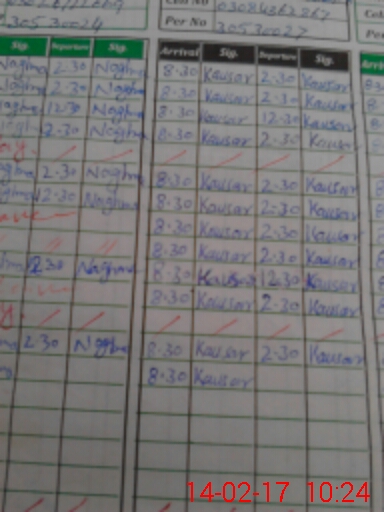 Cell No 03084362867
305 30024 Per No 30530027
Sig. Departure Sig. Arrival Sig. Departure Sig.
Naghma 2-30 Naghma 8-30 Kausar 2-30 Kausar
Naghma 2-30 Naghma 8-30 Kausar 2-30 Kausar
Naghma 12-30 Naghma 8-30 Kausar 12-30 Kausar
2-30 Naghma 8-30 Kausar 2-30 Kausar
2-30 Naghma 8-30 Kausar 2-30 Kausar
12-30 Naghma 8-30 Kausar 2-30 Kausar
8-30 Kausar 2-30 Kausar
8-30 Kausar 2-30 Kausar
2-30 Naghma 8-30 Kausar 12-30 Kausar
8-30 Kausar 2-30 Kausar
2-30 Naghma 8-30 Kausar 2-30 Kausar
8-30 Kausar
14-02-17 10:24